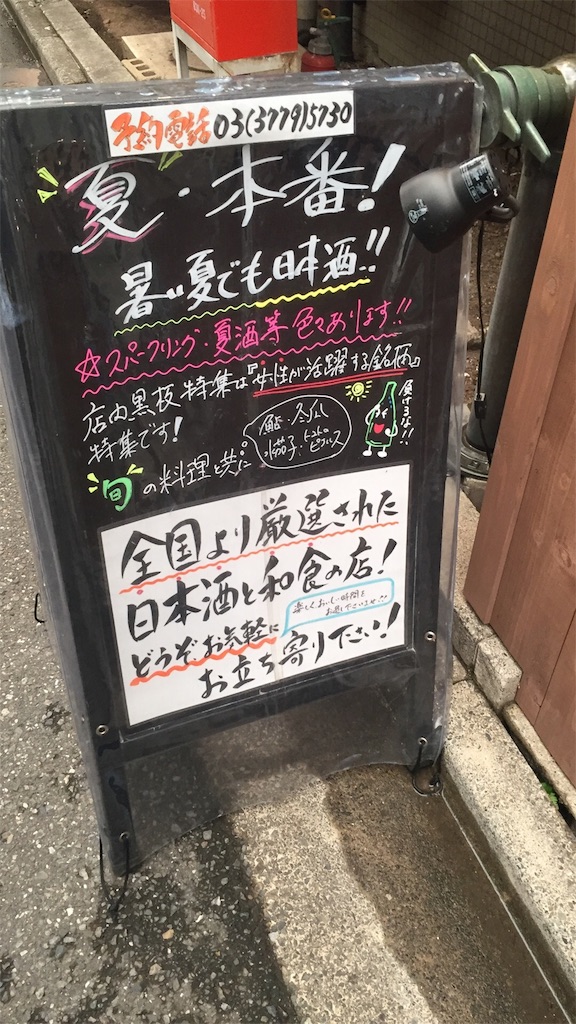 予約電話 03(5779)5730
夏・本番!
暑い夏でも日本酒!!
☆スパークリング・夏酒等色々あります!!
店内黒板特集は『女性が活躍する銘柄』
特集です!
旬の料理と共に
鮎・冬瓜
水茄子・トマト
ピクルス
負けるな!!
全国より厳選された
日本酒と和食の店!
どうぞお気軽に
楽しくおいしい時間を
お過し下さいませ!!
お立ち寄り下さい!